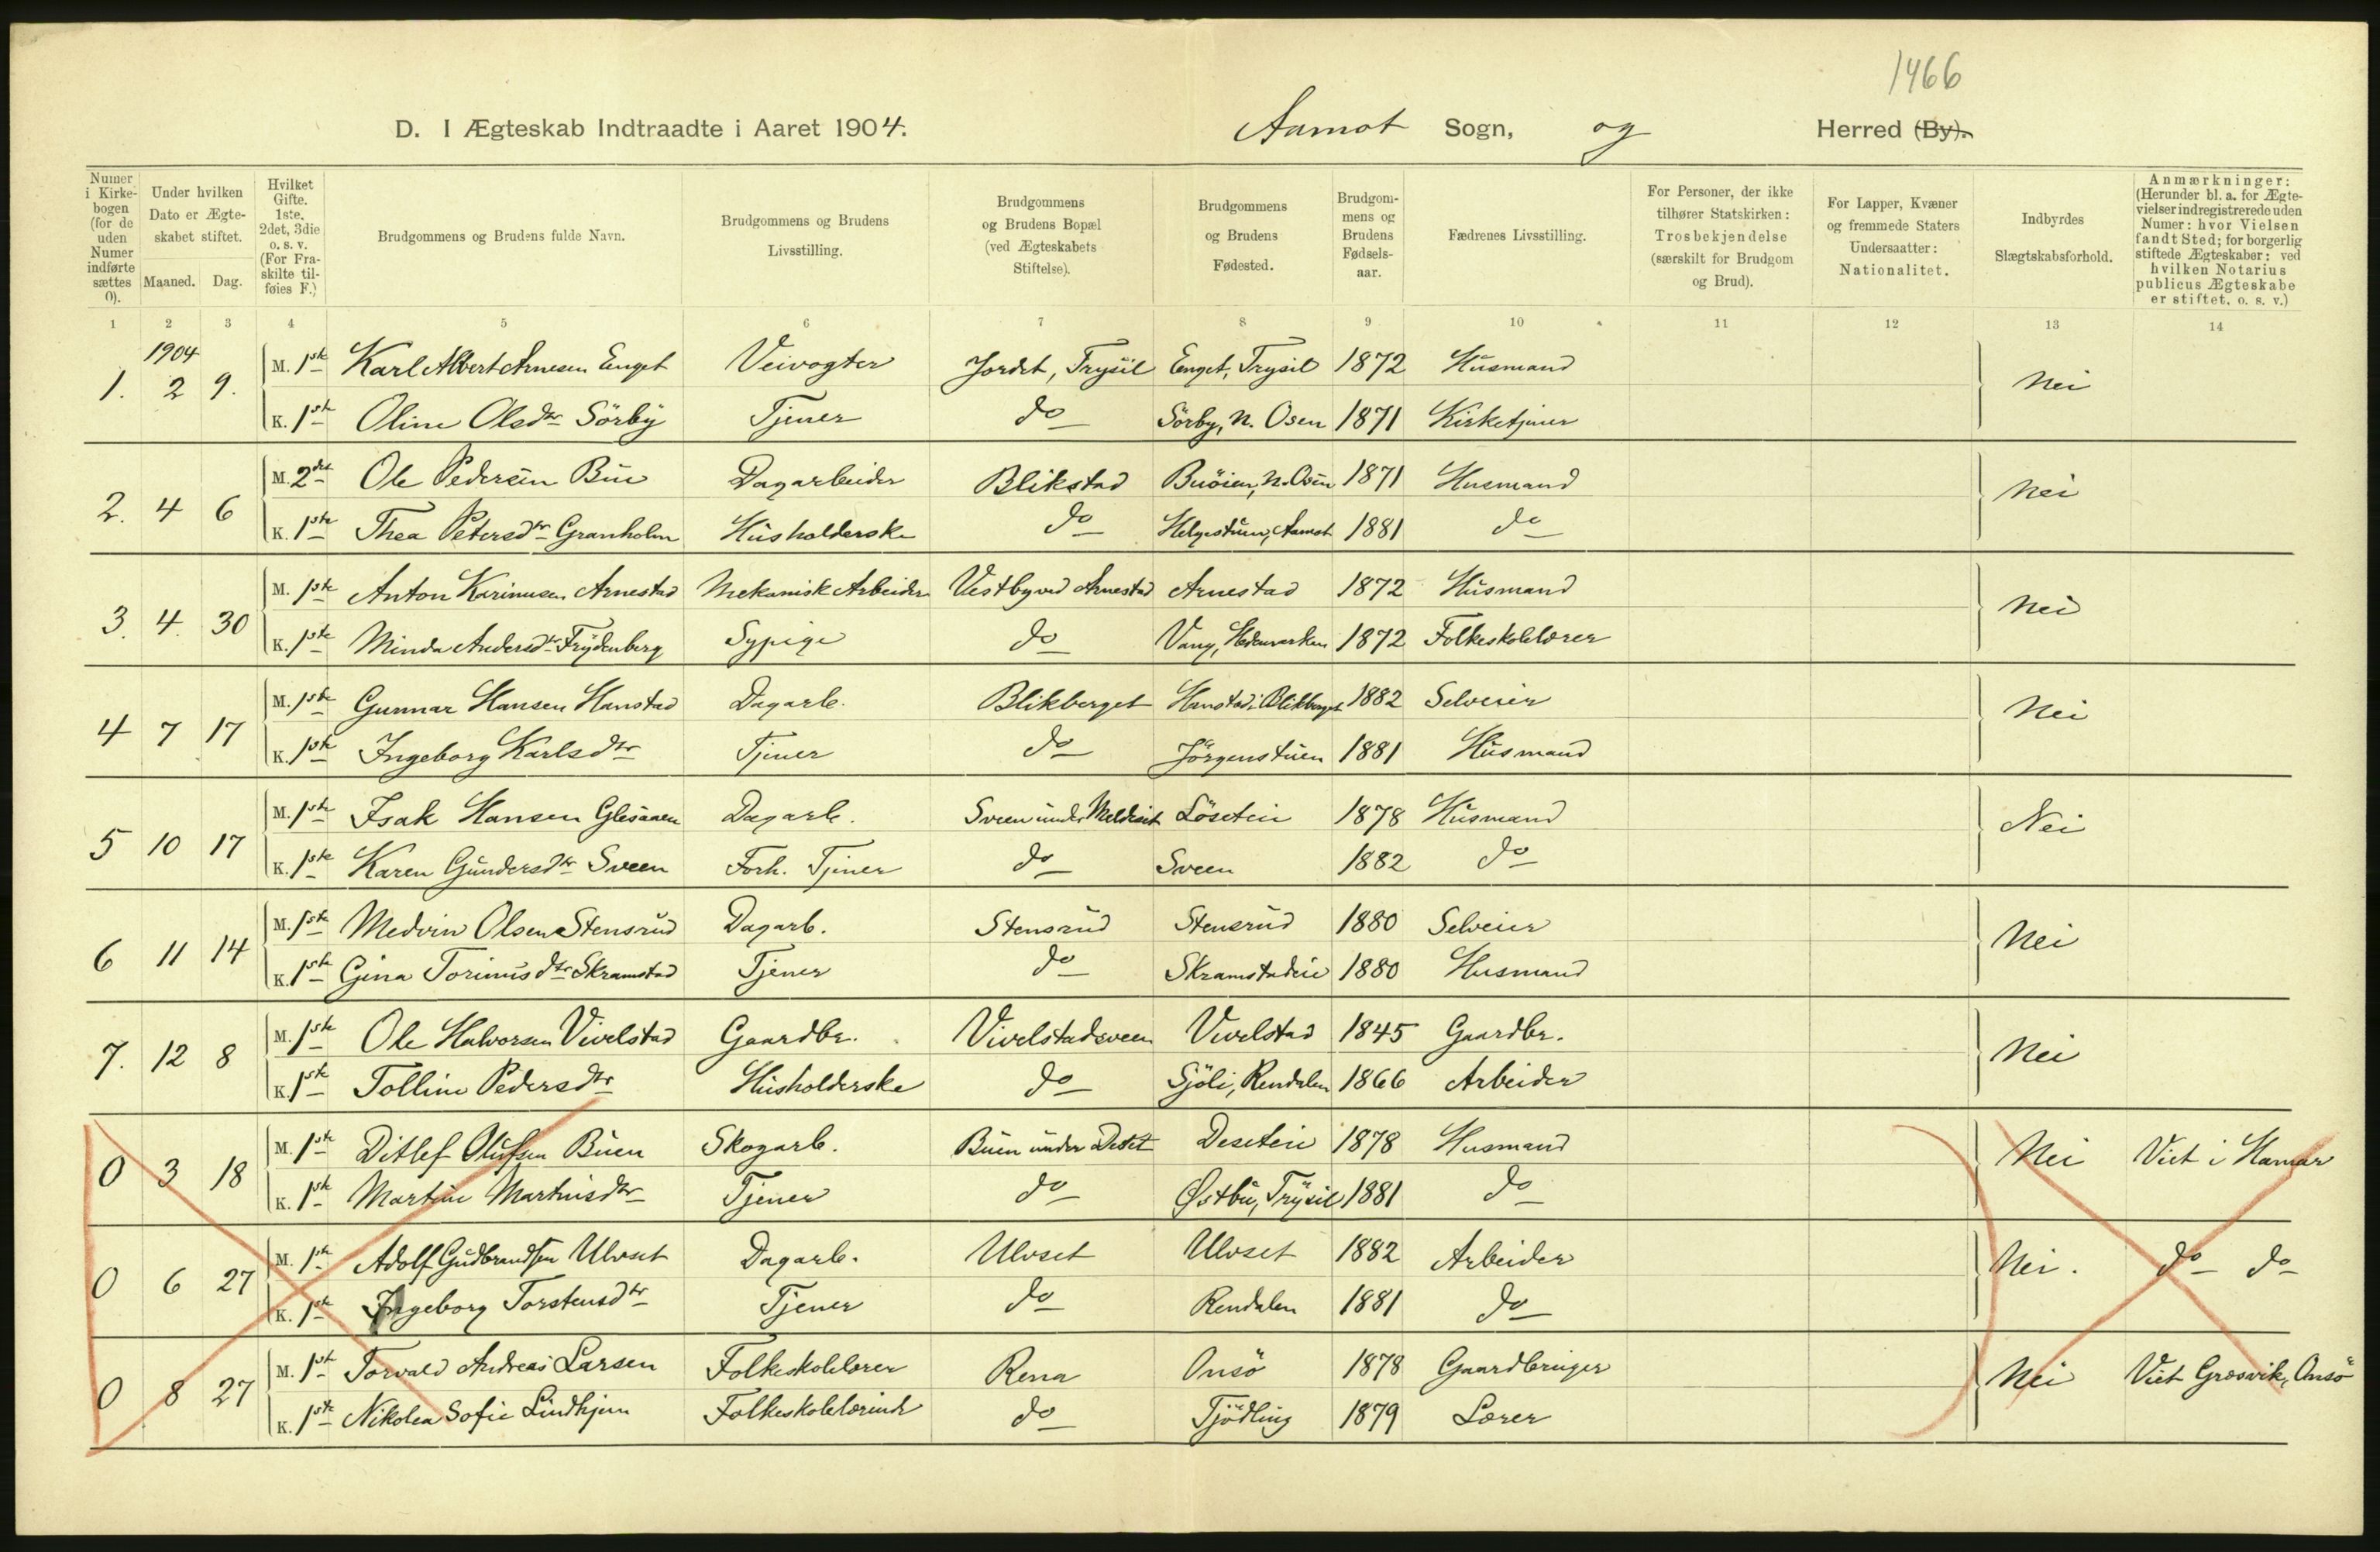 1466
D. I Ægteskab Indtraadte i Aaret 1904. Aamot Sogn, og Herred (By).
Numer i Kirkebogen (for de uden Numer indførte sættes 0).
Under hvilken Dato er Ægteskabet stiftet.
Maaned. Dag.
Hvilket Gifte. 1ste, 2det, 3die o. s. v. (For Fraskilte tilføies F.)
Brudgommens og Brudens fulde Navn.
Brudgommens og Brudens Livsstilling.
Brudgommens og Brudens Bopæl (ved Ægteskabets Stiftelse).
Brudgommens og Brudens Fødested.
Brudgommens og Brudens Fødselsaar.
Fædrenes Livsstilling.
For Personer, der ikke tilhører Statskirken: Trosbekjendelse (særskilt for Brudgom og Brud).
For Lapper, Kvæner og fremmede Staters Undersaatter: Nationalitet.
Indbyrdes Slægtskabsforhold.
Anmærkninger: (Herunder bl. a. for Ægtevielser indregistrerede uden Numer: hvor Vielsen fandt Sted; for borgerlig stiftede Ægteskaber: ved hvilken Notarius publicus Ægteskabe er stiftet, o. s. v.)
1 2 3 4 5 6 7 8 9 10 11 12 13 14
1904
1. 2 9. M. 1ste Karl Albert Arnesen Enget Veivogter Jordet, Trysil Enget, Trysil 1872 Husmand Nei
K. 1ste Oline Olsdtr Sörby Tjener do Sörby, N. Osen 1871 Kirketjener
2. 4 6 M. 2det Ole Pedersen Bue Dagarbeider Blikstad Buöien, N. Osen 1871 Husmand Nei
K. 1ste Thea Petersdtr Granholm Husholderske do Helgestuen, Aamot 1881 do
3. 4. 30 M. 1ste Anton Karinusen Arnestad Mekanisk Arbeider Vestby ved Arnestad Arnestad 1872 Husmand Nei
K. 1ste Minda Andersdtr Frydenberg Sypige do Vang, Hedemarken 1872 Folkeskolelærer
4 7 17 M. 1ste Gunnar Hansen Hanstad Dagarb. Blikberget Hanstad i Blikberget 1882 Selveier Nei
K. 1ste Ingeborg Karlsdtr Tjener do Jörgenstuen 1881 Husmand
5 10 17 M. 1ste Isak Hansen Glesaaen Dagarb. Sveen under Meldeset Löseteie 1878 Husmand Nei
K. 1ste Karen Gundersdtr Sveen Forh. Tjener do Sveen 1882 do
6 11 14 M. 1ste Medvin Olsen Stensrud Dagarb. Stensrud Stensrud 1880 Selveier Nei
K. 1ste Gina Torinusdtr Skramstad Tjener do Skramstadeie 1880 Husmand
7. 12 8 M. 1ste Ole Halvorsen Vivelstad Gaardbr. Vivelstadsveen Vivelstad 1845 Gaardbr. Nei
K. 1ste Tolline Pedersdtr Husholderske do Sjöli, Rendalen 1866 Arbeider
0 3 18 M. 1ste Ditlef Olufsen Buen Skogarb. Buen under Deset Deseteie 1878 Husmand Nei Viet i Hamar
K. 1ste Martine Martinisdtr Tjener do Østbu, Trysil 1881 do
0 6 27 M. 1ste Adolf Gudbrandsen Ulvset Dagarb. Ulvset Ulvset 1882 Arbeider Nei. do do
K. 1ste Ingeborg Torstensdtr Tjener do Rendalen 1881 do
0 8 27 M. 1ste Torvald Andreas Larsen Folkeskolelærer Rena Onsö 1878 Gaardbruger Nei Viet Græsvik, Onsö
K. 1ste Nikolea Sofie Lindhjem Folkeskolelærinde do Tjödling 1879 Lærer